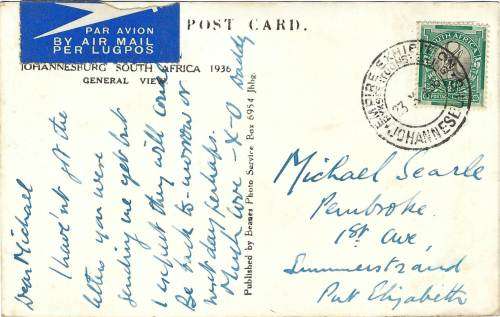 PAR AVION
BY AIR MAIL
PER LUGPOS
POST CARD.
JOHANNESBURG SOUTH AFRICA 1936
GENERAL VIEW
SOUTH AFRICA
EMPIRE EXHIBITION
JOHANNESB
23
Dear Michael
I have'nt got the
letters you were
sending me yet but
I expect they will come
Be back to-morrow or
next day perhaps.
Much love - X-O Daddy
Published by Beaner Photo Service Box 6954 Jhbg.
Michael Searle
Pembroke
1st Ave,
Summerstrand
Port Elizabeth